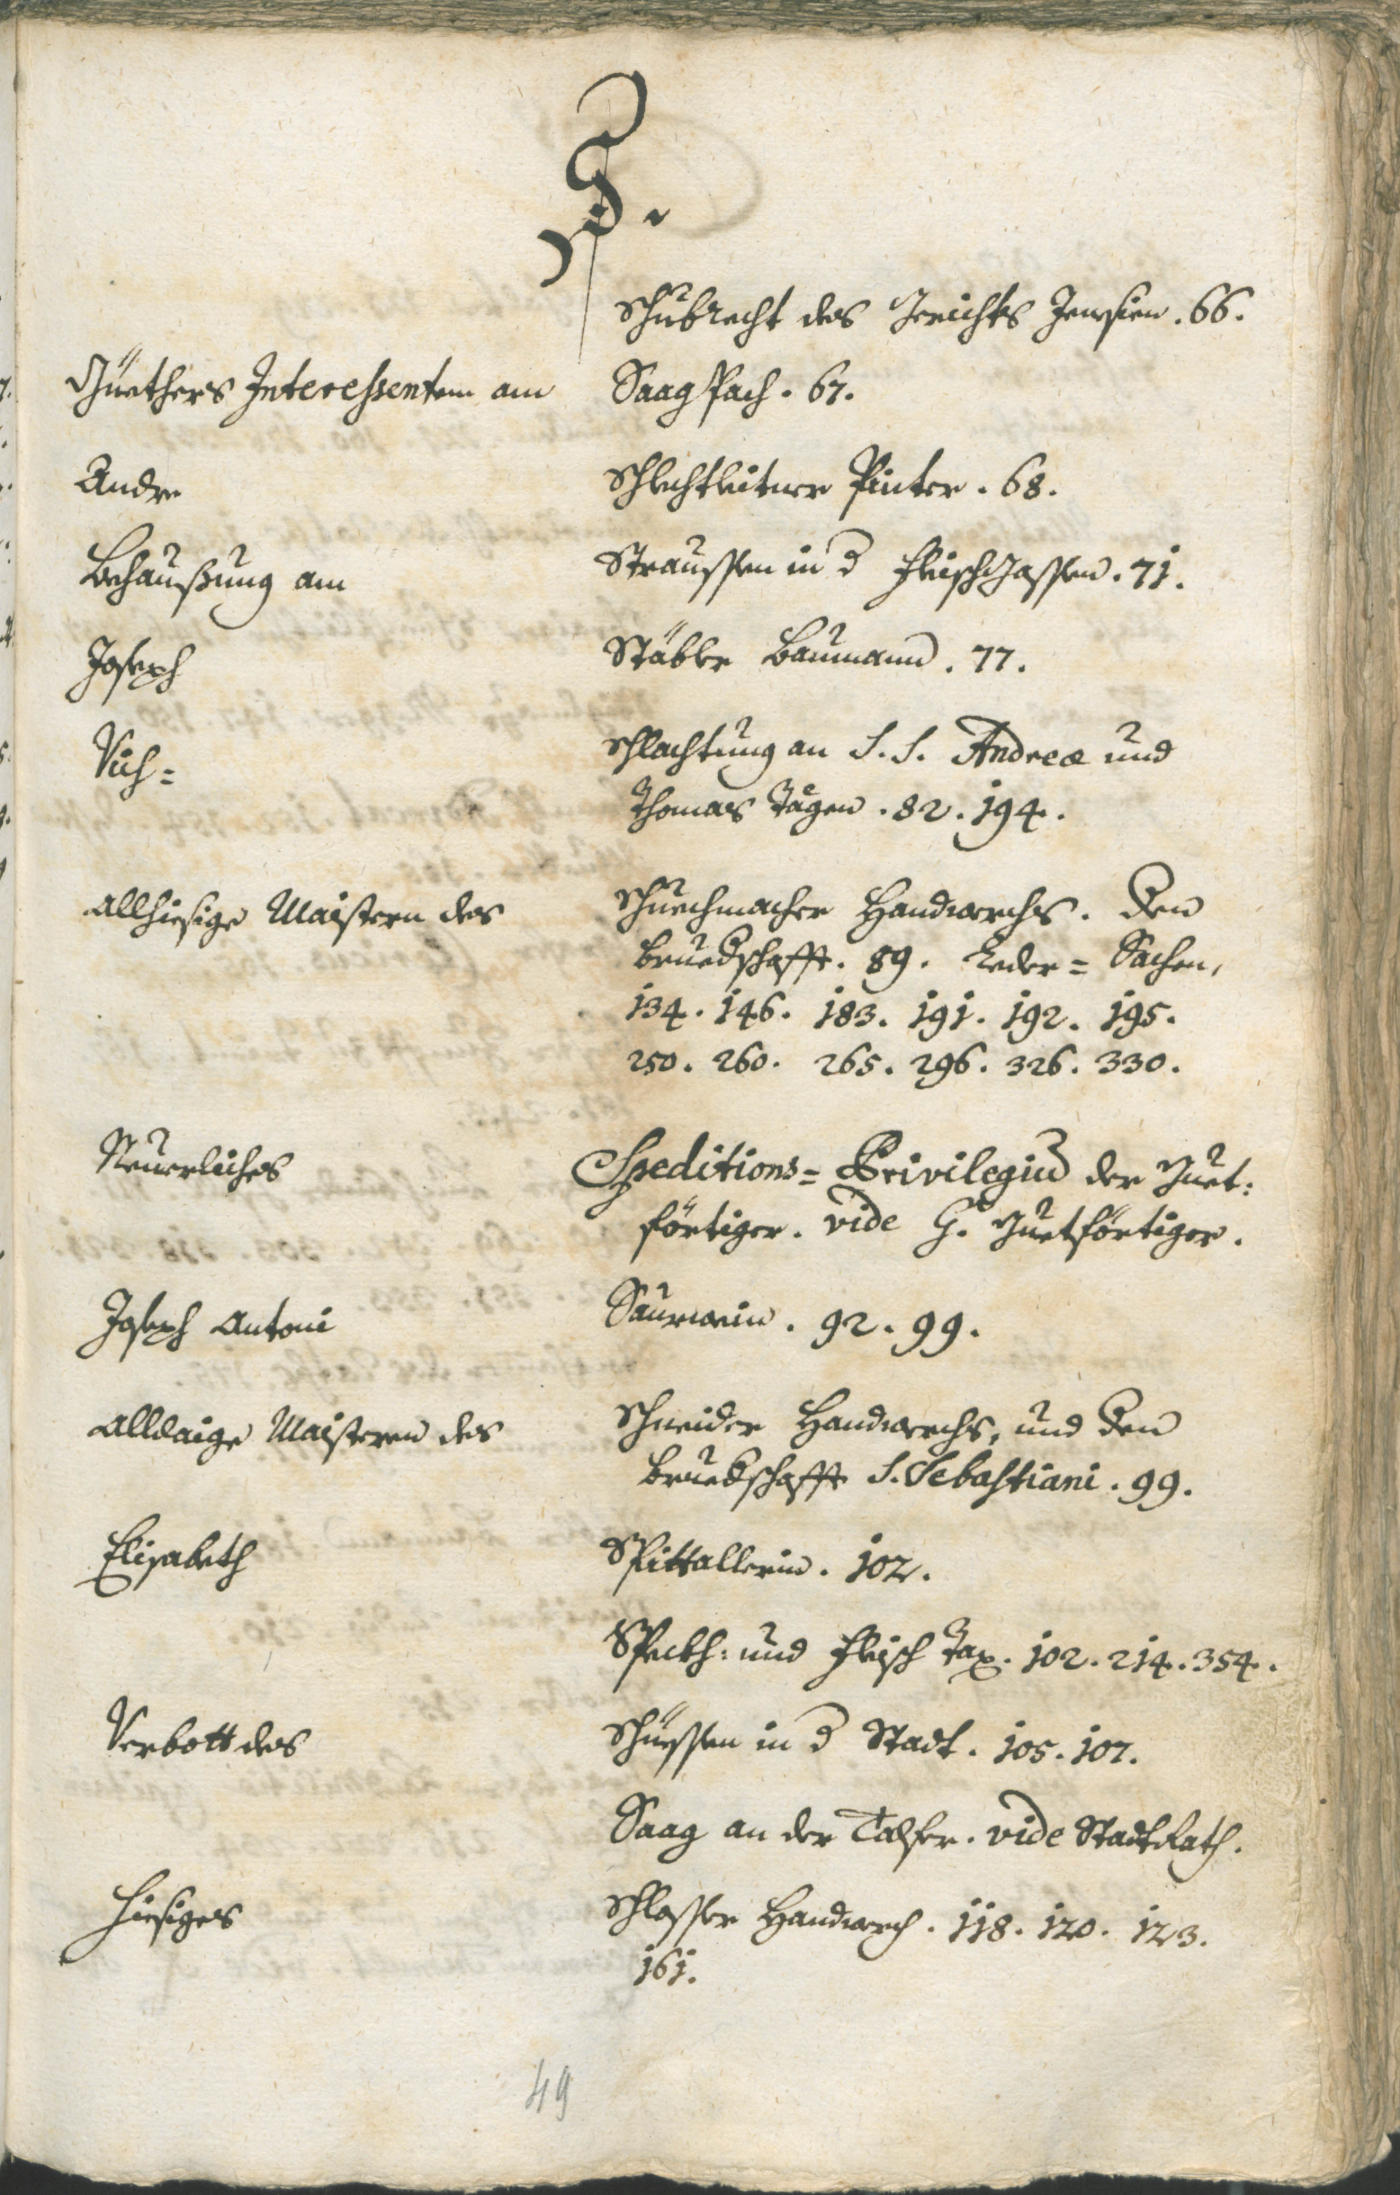 S.
Schubrecht des Gerichts Jenesien. 66.
Güethers Interessenten am Saag Pach. 67.
Andre Schlechtleitner Pinter. 68.
Behaußung am Straussen in d FleischGassen. 71.
Joseph Stäbler Baumann. 77.
Vich= Schlachtung an S. S. Andreæ und
Thomas Tägen. 82. 194.
Allhiesige Maistern des Schuechmacher Handwerchs. Den
Bruedschafft. 89. Leder= Sachen,
134. 146. 183. 191. 192. 195.
250. 260. 265. 296. 326. 330.
Neuerliches Speditions= Privilegiu der Guet:
förtiger. vide G. Guetförtiger.
Joseph Antoni Saurwein. 92. 99.
Alldaige Maistern des Schneider Handwerchs, und den
Bruedschafft S. Sebastiani. 99.
Elisabeth Spittallerin. 102.
Speckh: und Fleisch Tax. 102. 214. 354.
Verbott des Schüessen in d Stadt. 105. 107.
Saag an der Talfer. vide StadtRath.
Hiesiges Schlosser Handwerch. 118. 120. 123.
161.
49